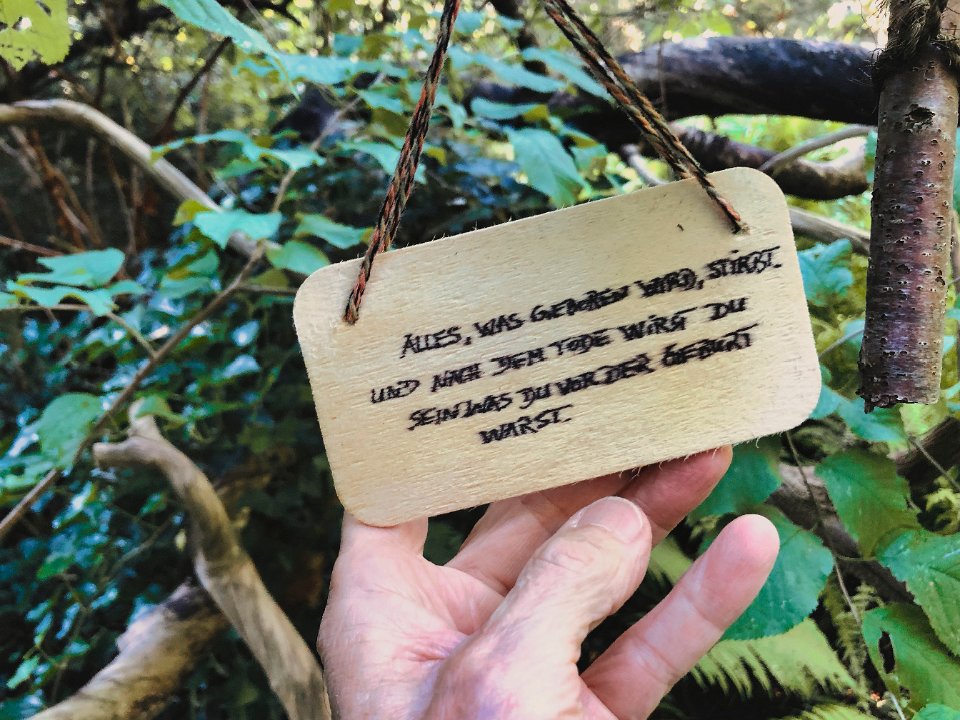 ALLES, WAS GEBOREN WIRD, STIRBT.
UND NACH DEM TODE WIRST DU
SEIN WAS DU VOR DER GEBURT
WARST.